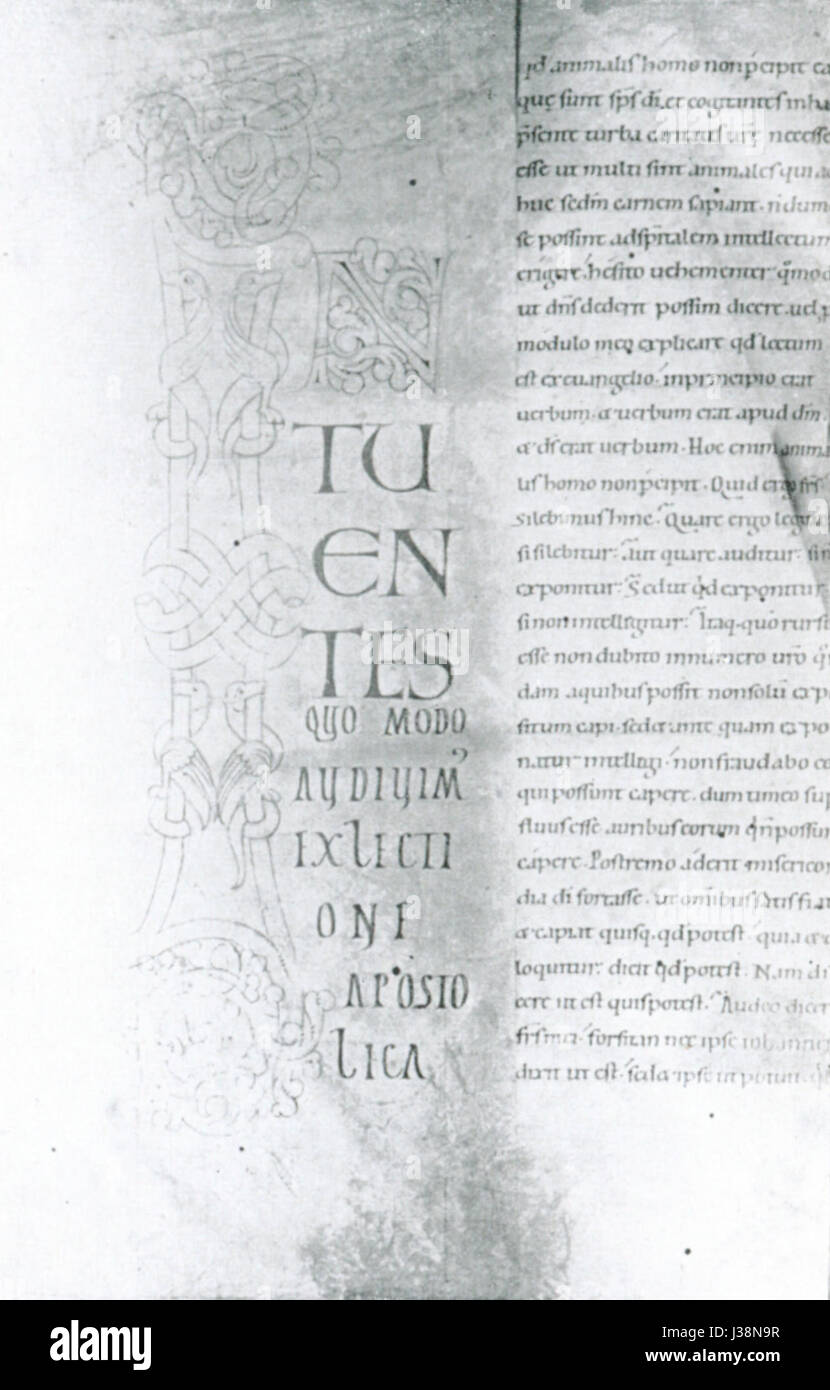 IN
TU
EN
TES
QUO MODO
AUDIUIM᾽
EXLECTI
ONE
APOSTO
LICA
qd animalis homo nonpcipit ea
quę sunt sps di. et cogitantes inha
psente turba caritatis ure necesse
esse ut multi sint animales qui ad
huc sedm carnem sapiant. ñdum
se possint adspitalem intellectum
erigere. hesito uehementer qmodo
ut dns dederit possim dicere. uel p
modulo meo explicare qd lectum
est exeuangelio. inprincipio erat
uerbum. & uerbum erat apud dm.
& ds erat uerbum. Hoc enim animal
is homo nonpcipit. Quid ergo frs
silebimus hinc. Quare ergo legitur
si silebitur. Aut quare auditur. si n
exponitur. Sed ut qd exponitur.
si non intelligitur. Itaq. quo rursu
esse non dubito innumero uro q
dam aquibus possit nonsolu exp
situm capi. sed et ante quam expo
natur intelligi. nonfraudabo eo
qui possunt capere. dum timeo sup
fluus esse auribus eorum qi n possun
capere. Postremo aderit misericor
dia di fortasse. ut omibus satis fiat
& capiat quisq. qd potest. quia & q
loquitur. dicit qd potest. Nam di
cere ut est quis potest. Audeo dicer
frs mei. forsitan nec ipse iohannes
dixit ut est. sed & ipse ut potuit. q